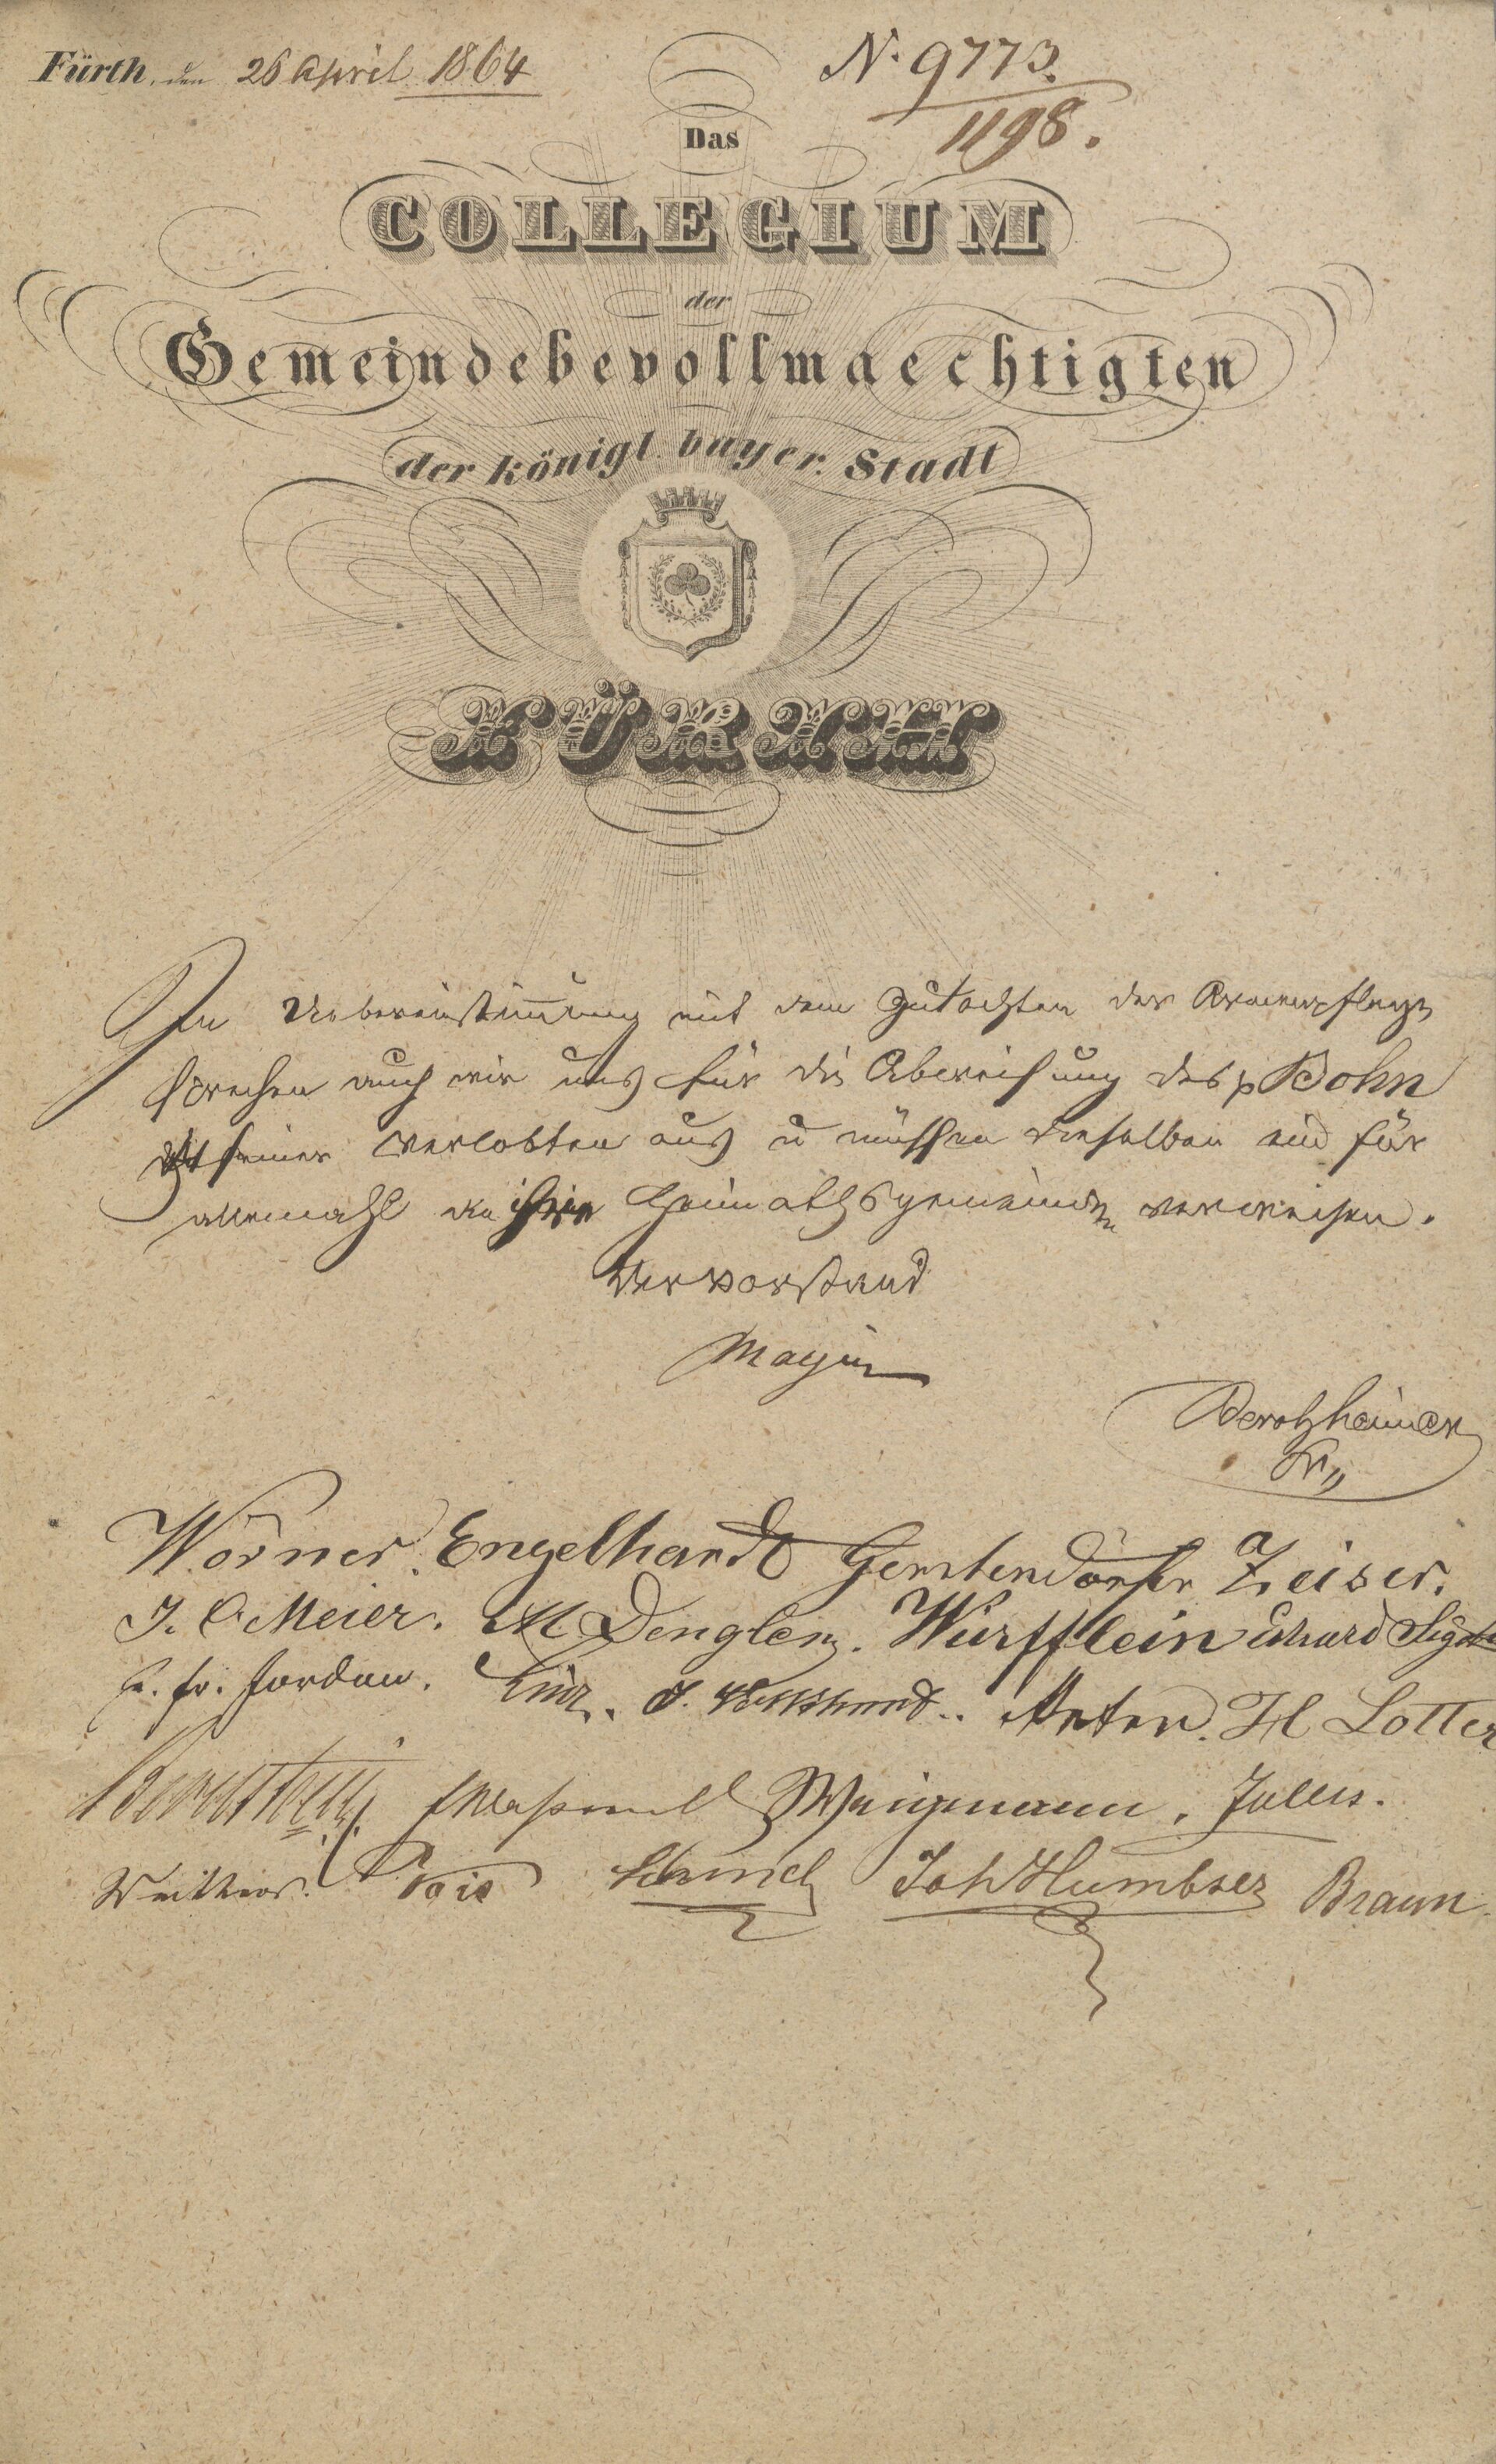 Fürth, den 26 April 1864
N. 9773.
1198.
Das
COLLEGIUM
der
Gemeindebevollmaechtigten
der königl. bayer. Stadt
FÜRTH
In Uebereinstimmung mit dem Gutachten der Armenpflege
sprechen auch wir uns für die Abweisung des p Bohn
seiner Verlobten aus u müssen dieselben ein für
allemahl an ihre Heimathsgemeinden verweisen.
Der Vorstand
Mayer
Berolzheimer
Wörner. Engelhardt Gerstendörfer Zeiser.
J. C. Meier. M Dengler. Würfflein Erhard
fr. Jordan. J. Volkhard.. H Lotter
Weigmann. Julius.
Joh Humbser Braun.